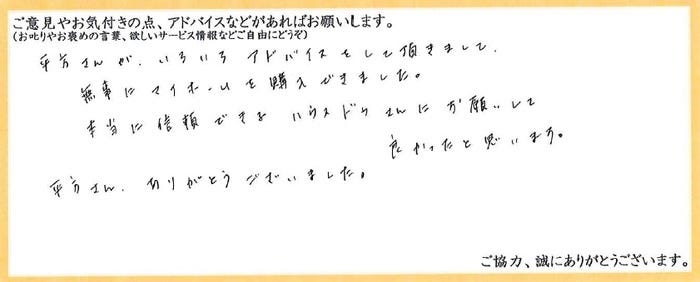 ご意見やお気付きの点、アドバイスなどがあればお願いします。
(お叱りやお褒めの言葉、欲しいサービス情報などご自由にどうぞ)
平方さんが、いろいろ アドバイスをして頂きまして、
無事に マイホームを 購入できました。
本当に 信頼できる ハウスドゥさんに お願いして
良かったと思います。
平方さん、ありがとうございました。
ご協力、誠にありがとうございます。